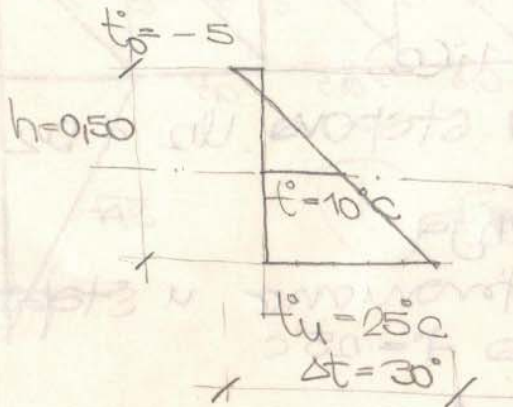 t°₀ = -5
h=0,50
t°=10°C
t°u = 25°C
Δt = 30°